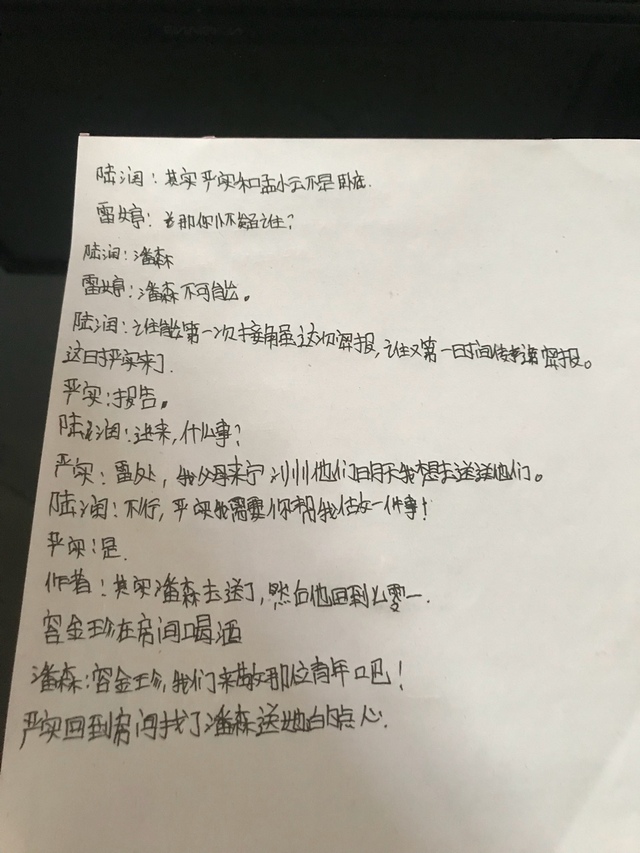 陆润：其实严实和孟小云不是卧底.
雷婷：那你怀疑谁？
陆润：潘森
雷婷：潘森不可能。
陆润：谁能第一次接触这次密报，谁又第一时间传递密报。
这时严实来了.
严实：报告。
陆润：进来，什么事？
严实：雷处，我父母来宁州他们明天我想去送送他们。
陆润：不行，严实我需要你帮我做一件事！
严实：是.
作者：其实潘森去送了，然后他回到么零一.
容金珍在房间喝酒
潘森：容金珍，我们来敬那位青年吧！
严实回到房间找了潘森送她的点心.